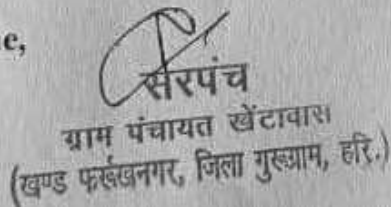 e,
सरपंच
ग्राम पंचायत खेंटावास
(खण्ड फर्रूखनगर, जिला गुरूग्राम, हरि.)